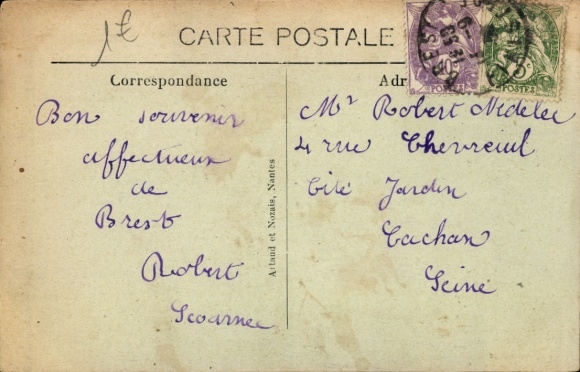 1€
CARTE POSTALE
Correspondance
Adr
Bon souvenir
affectueux
de
Brest
Robert
Scoarnec
Artaud et Nozais, Nantes
Mr Robert Nédélec
4 rue Chevreuil
Cité Jardin
Cachan
Seine
BREST
10c
POSTES
5c
POSTES